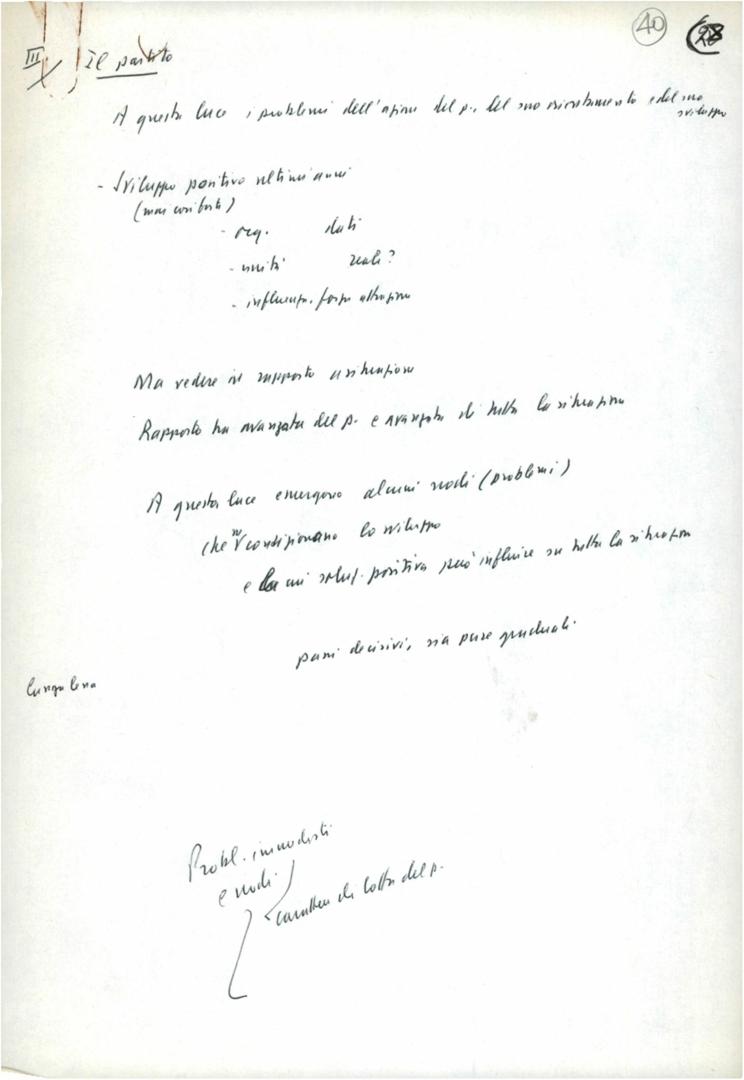 40 28
III Il partito
A questa luce i problemi dell'azione del p., del suo orientamento e del suo
sviluppo
- Sviluppo positivo ultimi anni
(mai così forti)
- org. dati
- unità reale?
- influenza, forza attrazione
Ma vedere in rapporto a situazione
Rapporto tra avanzata del p. e avanzata di tutta la situazione
A questa luce emergono alcuni nodi (problemi)
che ne condizionano lo sviluppo
e la cui soluz. positiva può influire su tutta la situazione
passi decisivi, sia pure graduali.
lunga lena
Probl. immediati
e nodi
carattere di lotta del p.